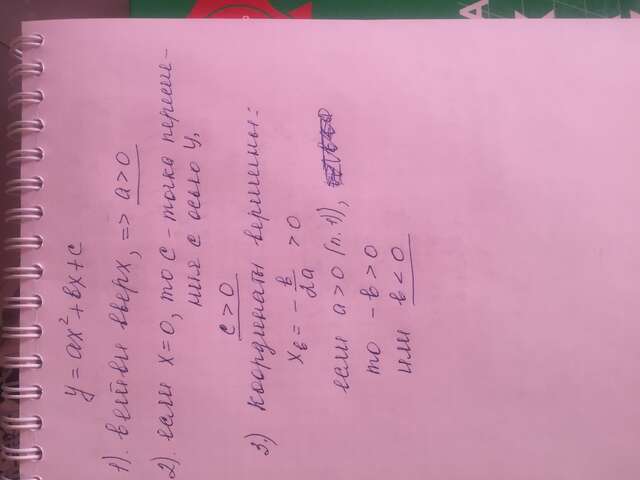 y = ax² + bx + c
1). ветви вверх, => a > 0
2). если x=0, то c - точка пересече-
ния с осью y,
c > 0
3.) координаты вершины:
xв = - b/2a > 0
если a > 0 (п. 1)),
то -b > 0
или b < 0